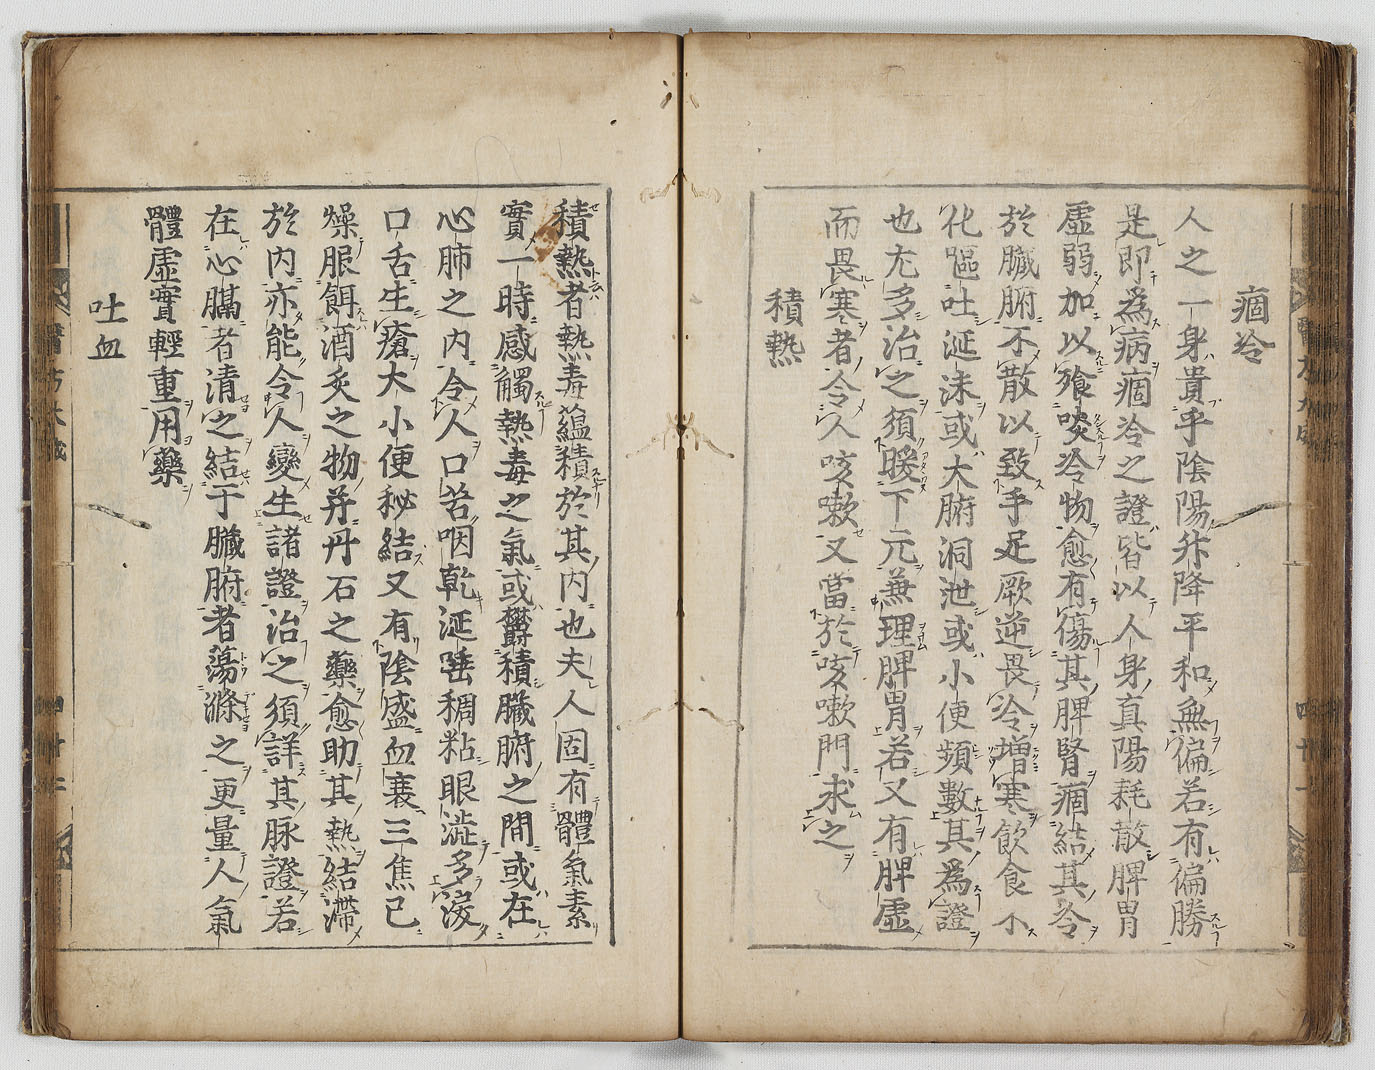 痼冷
人之一身貴乎陰陽升降平和無偏若有偏勝
是即為病痼冷之證皆以人身真陽耗散脾胃
虛弱加以飡啖冷物愈有傷其脾腎痼結其冷
於臟腑不散以致手足厥逆畏冷增寒飲食不
化嘔吐涎沫或大腑洞泄或小便頻數其為證
也尤多治之須暖下元兼理脾胃若又有脾虛
而畏寒者令人咳嗽又當於咳嗽門求之
積熱
積熱者熱毒蘊積於其內也夫人固有體氣素
實一時感觸熱毒之氣或欝積臟腑之間或在
心肺之內令人口苦咽乾涎唾稠粘眼澁多淚
口舌生瘡大小便秘結又有陰盛血衰三焦已
燥服餌酒炙之物并丹石之藥愈助其熱結滯
於內亦能令人變生諸證治之須詳其脉證若
在心膈者清之結于臟腑者蕩滌之更量人氣
體虛實輕重用藥
吐血